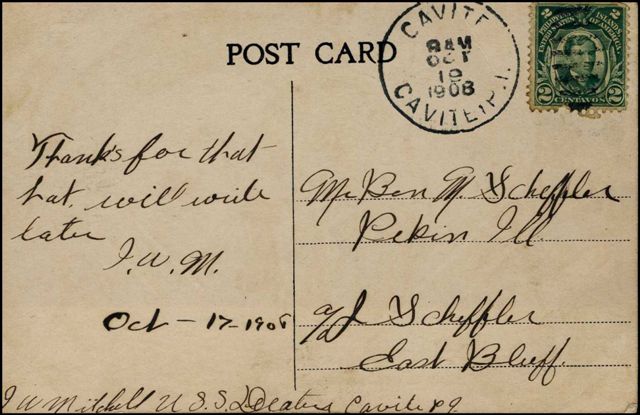 POST CARD
CAVITE
8 AM
OCT
19
1908
CAVITE, P.I.
PHILIPPINE ISLANDS
UNITED STATES OF AMERICA
2 CENTAVOS 2
Thanks for that
hat. will write
later
I. W. M.
Oct - 17 - 1908
Mr Ben M Scheffler
Pekin Ill.
Scheffler
East Bluff.
J W Mitchell U. S. S. Cavite P I